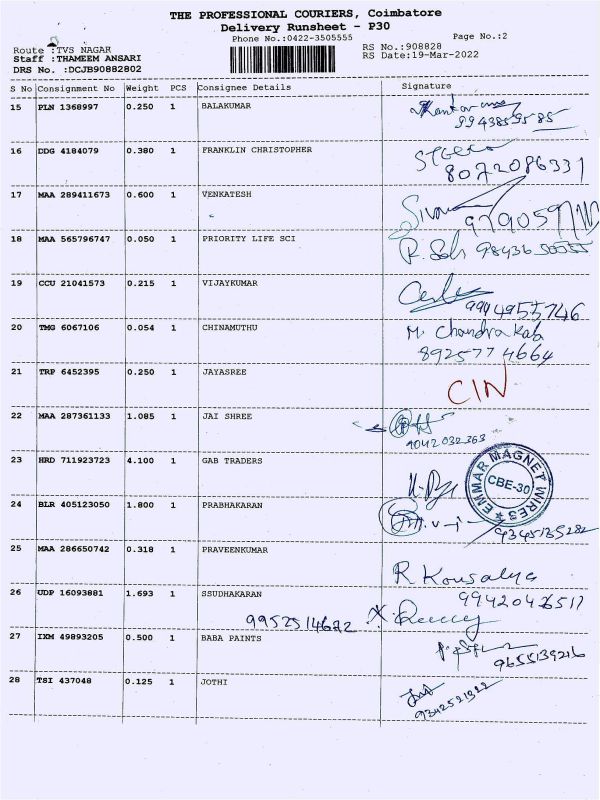 THE PROFESSIONAL COURIERS, Coimbatore
Delivery Runsheet - P30
Phone No.:0422-3505555 Page No.:2
Route :TVS NAGAR RS No.:908828
Staff :THAMEEM ANSARI RS Date:19-Mar-2022
DRS No. :DCJB90882802
S No Consignment No Weight PCS Consignee Details Signature
15 PLN 1368997 0.250 1 BALAKUMAR
16 DDG 4184079 0.380 1 FRANKLIN CHRISTOPHER
8072086331
17 MAA 289411673 0.600 1 VENKATESH
Siva
18 MAA 565796747 0.050 1 PRIORITY LIFE SCI
19 CCU 21041573 0.215 1 VIJAYKUMAR
9994955746
20 TMG 6067106 0.054 1 CHINAMUTHU M. Chandrakala
8925774664
21 TRP 6452395 0.250 1 JAYASREE
CIN
22 MAA 287361133 1.085 1 JAI SHREE
9042032363
23 HRD 711923723 4.100 1 GAB TRADERS
EMMAR MAGNET WIRES
CBE-30
24 BLR 405123050 1.800 1 PRABHAKARAN
9345135282
25 MAA 286650742 0.318 1 PRAVEENKUMAR
R Kousalya
26 UDP 16093881 1.693 1 SSUDHAKARAN
27 IXM 49893205 0.500 1 BABA PAINTS
9655139216
28 TSI 437048 0.125 1 JOTHI
9342521322